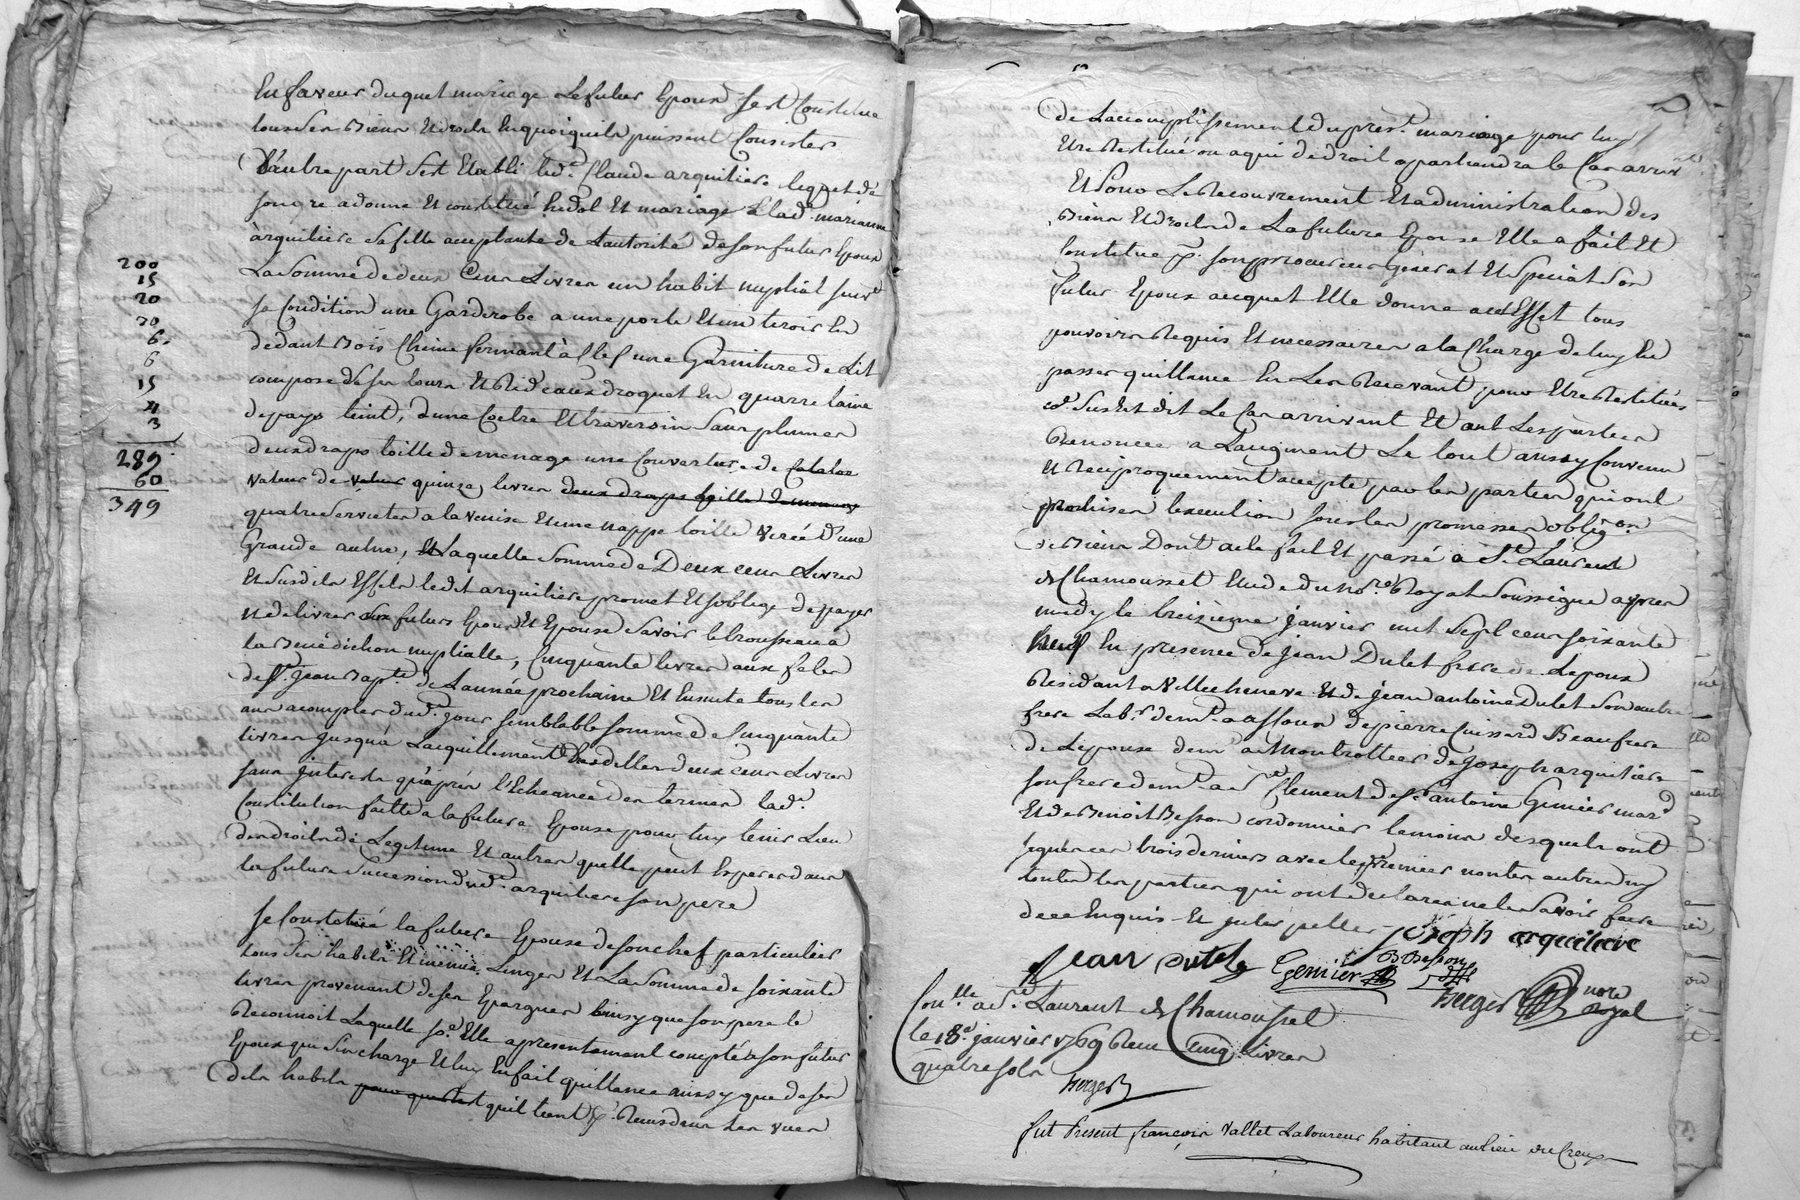 En faveur duquel mariage Le futur Epoux s'est Constitue
tous ses Biens Et droits En quoiquils puissent Consister
D'autre part s'est Etabli led.t Claude arquiliere lequel de
son gre a donne Et constitué En dot Et mariage a lad.e marianne
arquiliere sa fille acceptante de L'autorité de son futur Epoux
La Somme de deux Cens Livres un habit nuptial suiv.t
sa Condition une Garderobe a une porte Et un tiroir En
dedant Bois Chêne fermant à Clef une Garniture de Lit
compose de ses tours Et Rideaux droguet En quarre laine
de pays teint, d'une Coetre Et traversin Sans plumes
deux draps toille de menage une Couverture de Catalos
valeur de valeur quinze livres deux draps toille de menage
quatre Serviettes a la venise Et une nappe toille
Grande aulne, Et Laquelle Somme de Deux cens Livres
Et Susdits Effets ledit arquiliere promet Et s'oblige de payer
Et delivrer aux futurs Epoux Et Epouse Savoir le trousseau a
la Benédiction nuptialle, Cinquante livres aux fetes
de S.t Jean Bapt.te de L'année prochaine Et Ensuite tous les
ans a compter dud.t jour semblable somme de Cinquante
livres jusqu'à L'acquittement desdittes deux cens Livres
sans jnterets qu'apres l'Echeance des termes lad.e
Constitution faitte a la future Epouse pour luy tenir Lieu
des droits de Legitime Et autres quelle peut Esperer dans
la future Succession dud.t arquiliere son pere
Se Constitué la future Epouse de son chef particulier
tous ses habits Et menus Linges Et La Somme de soixante
livres provenant de ses Epargnes ainsy que son pere le
Reconnoit Laquelle so.e Elle a presentement compté a son futur
Epoux qui s'en charge Et luy En fait quittance aussy que de ses
dits habits pour que tout quil tient p.r Reçus deux Les vues
200
15
20
30
6
6
15
4
3
289
60
349
de L'accomplissement du pres.t mariage pour luy
Etre Restitué ou a qui de droit apartiendra le Cas arriv.t
Et Pour Le Recouvrement Et administration des
Biens Et droits de La future Epouse Elle a fait Et
Constitue p.r son procureur general Et Special Son
futur Epoux auquel Elle donne a cet Effet tous
pouvoirs Requis Et necessaires a la Charge de luy En
passer quittance En Les Recevant pour Etre Restitués
co.e Sus Est dit Le Cas arrivant Et ont Les parties
Renoncee a L'augment Le tout aussy Convenu
Et Reciproquement accepté par les parties qui ont
promis en l'execution sous les promesses oblig.on
de Biens Dont acte fait Et passé a S.t Laurent
de Chamousset Etude du no.re Royal Soussigne apres
midy le treizieme janvier mil Sept cens soixante
neuf En presence de jean Dutel frere de Lepoux
Residant a Villecheneve Et de jean antoine Dutel Son autre
frere Lab.r dem.t a assoux de pierre Cuissard Beaufrere
de Lepouse dem.t a Montrottier de Joseph arquiliere
son frere dem.t a S.t Clement de S.r antoine Genier mar.d
Et de Benoit Besson cordonnier temoins desquels ont
signés ces trois derniers avec le premier non les autres ny
toutes les parties qui ont declarer ne le Savoir faire
de ce Enquis Et jnterpelles
joseph arquiliere
Jean dutel
B Besson
Genier
Berger
nore royal
Con.lle a S.t Laurent de Chamousset
le 18.e janvier 1769 Reçu Cinq Livres
quatre sols
Berger
fut Present françois Vallet Laboureur habitant au lieu du Creux